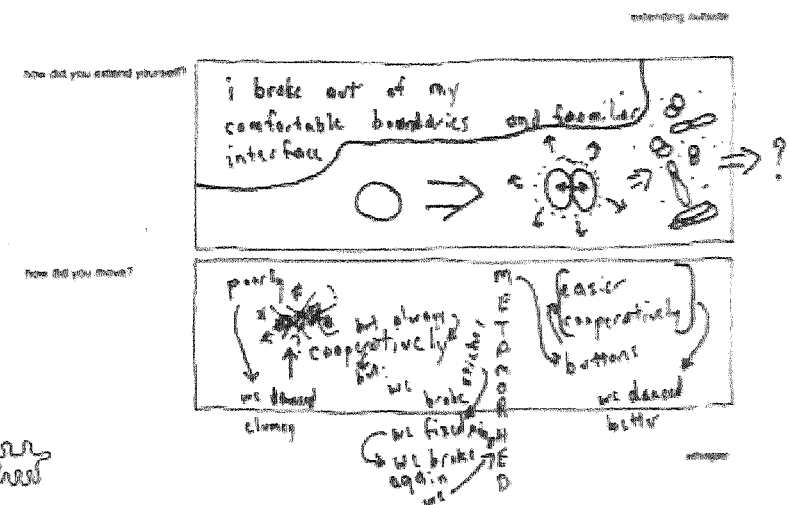 extending outside
how did you extend yourself?
i broke out of my
comfortable boundaries and familiar
interface
?
how did you move?
poorly
but always
cooperatively
but
we broke
we danced
clumsy
we fixed
we broke
again
we
METAMORPHED
easier
cooperatively
buttons
we danced
better